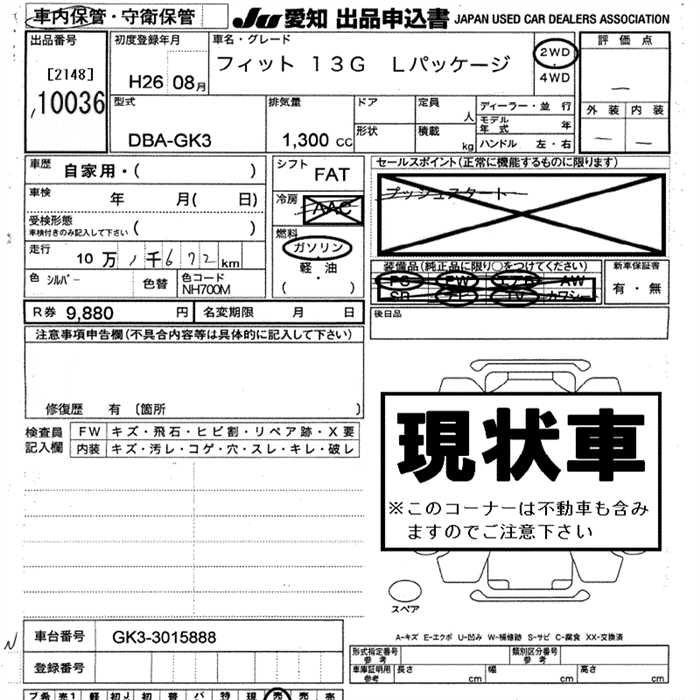 車内保管・守衛保管 JU 愛知 出品申込書 JAPAN USED CAR DEALERS ASSOCIATION
出品番号 初度登録年月 車名・グレード 評価点
[2148] H26 08月 フィット 13G Lパッケージ 2WD
4WD
10036 型式 排気量 ドア 定員 人 ディーラー・並行 外装 内装
モデル年式 年
DBA-GK3 1,300 cc 形状 積載 kg ハンドル 左・右
車歴 自家用・( ) シフト FAT セールスポイント(正常に機能するものに限ります)
車検 年 月( 日) 冷房 AAC プッシュスタート
受検形態
車検付きのみ記入して下さい ( ) 燃料 ガソリン
走行 10万1千672km 軽・油 装備品(純正品に限り○をつけてください) 新車保証書
色 シルバー 色替 色コード NH700M ( ) PS PW エアB AW 有・無
SR ナビ TV カワシート
R券 9,880 円 名変期限 月 日 後日品
注意事項申告欄(不具合内容等は具体的に記入して下さい)
修復歴 有 〔箇所 〕
検査員記入欄 FW キズ・飛石・ヒビ割・リペア跡・X要
内装 キズ・汚レ・コゲ・穴・スレ・キレ・破レ
現状車
※このコーナーは不動車も含み
ますのでご注意下さい
スペア
A-キズ E-エクボ U-凹み W-補修跡 S-サビ C-腐食 XX-交換済
車台番号 GK3-3015888 形式指定番号 参考 類別区分番号 参考
登録番号 車庫証明用 参考 長さ cm 幅 cm 高さ cm